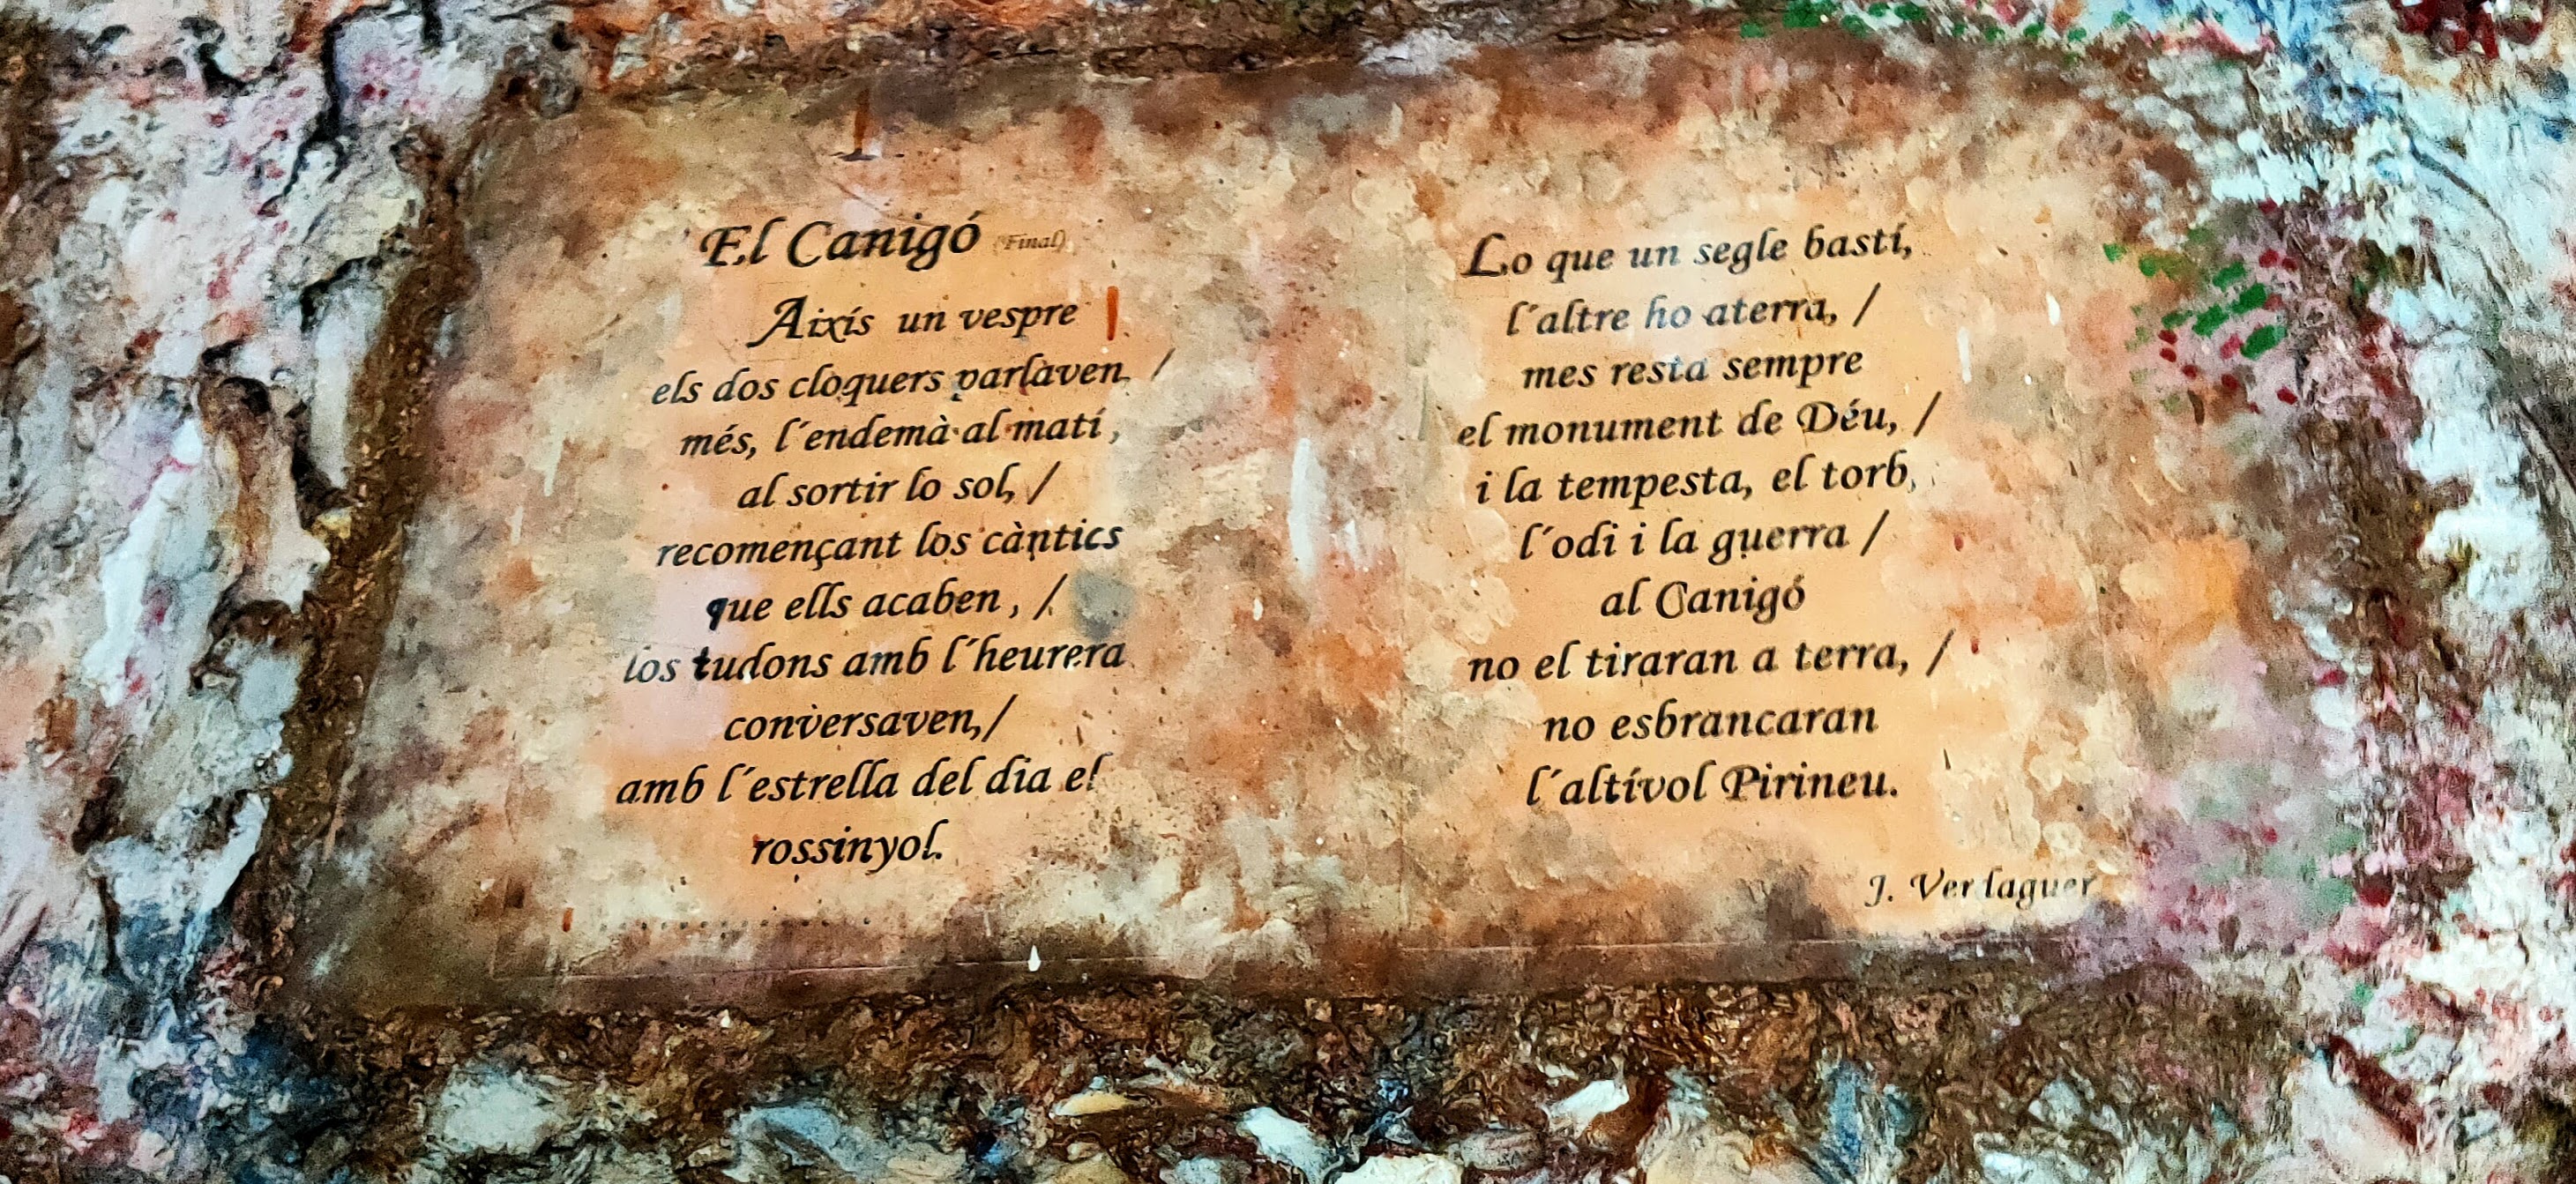 El Canigó (Final)
Aixís un vespre
els dos cloquers parlaven /
més, l´endemà al matí,
al sortir lo sol, /
recomençant los càntics
que ells acaben, /
los tudons amb l´heurera
conversaven,/
amb l´estrella del dia el
rossinyol.
Lo que un segle bastí,
l´altre ho aterra, /
mes resta sempre
el monument de Déu, /
i la tempesta, el torb,
l´odi i la guerra /
al Canigó
no el tiraran a terra, /
no esbrancaran
l´altívol Pirineu.
J. Verdaguer